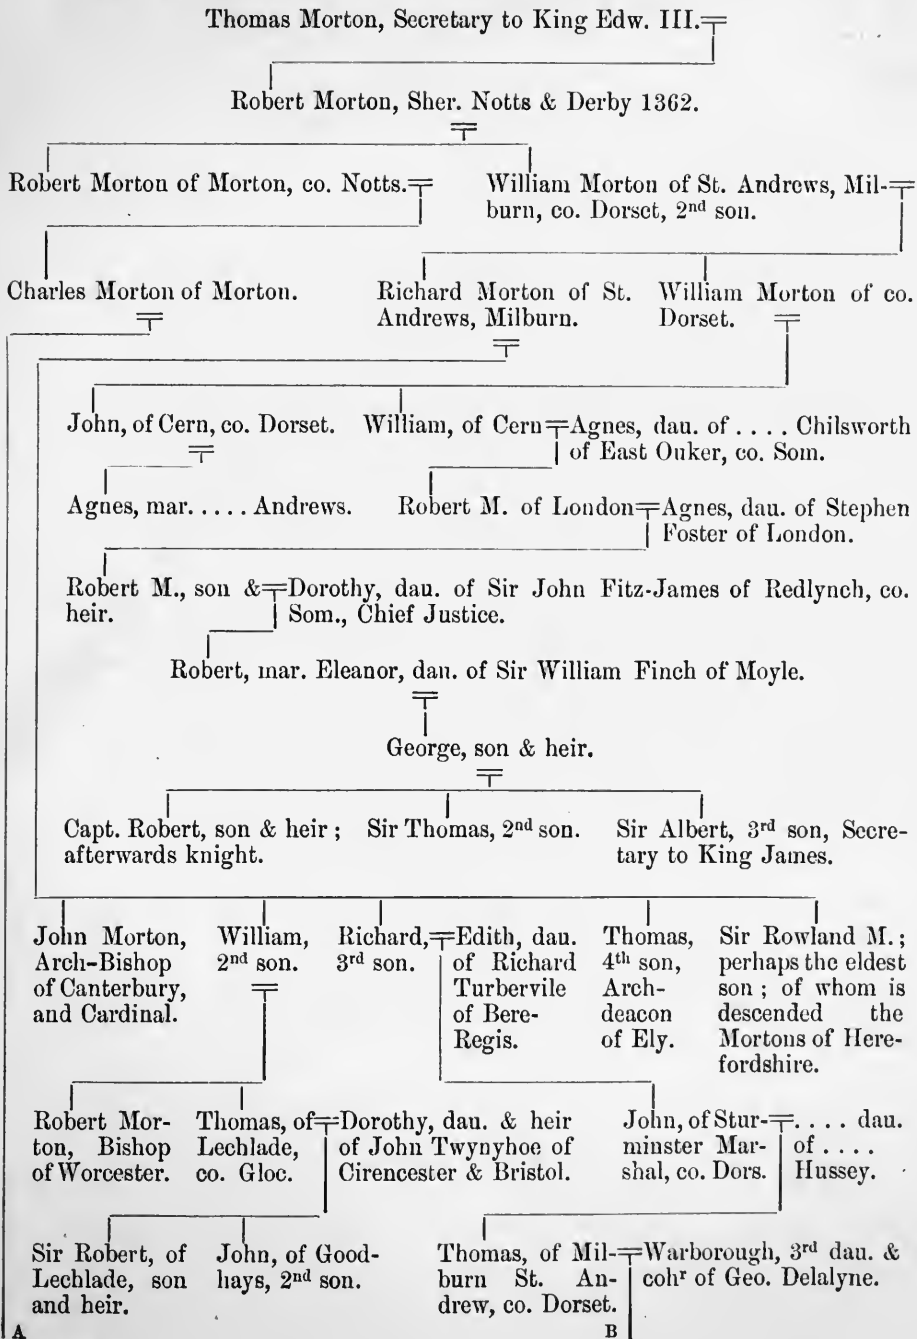 Thomas Morton, Secretary to King Edw. III.
Robert Morton, Sher. Notts & Derby 1362.
Robert Morton of Morton, co. Notts.
William Morton of St. Andrews, Mil-
burn, co. Dorset, 2nd son.
Charles Morton of Morton.
Richard Morton of St.
Andrews, Milburn.
William Morton of co.
Dorset.
John, of Cern, co. Dorset.
William, of Cern
Agnes, dau. of . . . . Chilsworth
of East Ouker, co. Som.
Agnes, mar. . . . . Andrews.
Robert M. of London
Agnes, dau. of Stephen
Foster of London.
Robert M., son &
heir.
Dorothy, dau. of Sir John Fitz-James of Redlynch, co.
Som., Chief Justice.
Robert, mar. Eleanor, dau. of Sir William Finch of Moyle.
George, son & heir.
Capt. Robert, son & heir ;
afterwards knight.
Sir Thomas, 2nd son.
Sir Albert, 3rd son, Secre-
tary to King James.
John Morton,
Arch-Bishop
of Canterbury,
and Cardinal.
William,
2nd son.
Richard,
3rd son.
Edith, dau.
of Richard
Turbervile
of Bere-
Regis.
Thomas,
4th son,
Arch-
deacon
of Ely.
Sir Rowland M. ;
perhaps the eldest
son ; of whom is
descended the
Mortons of Here-
fordshire.
Robert Mor-
ton, Bishop
of Worcester.
Thomas, of
Lechlade,
co. Gloc.
Dorothy, dau. & heir
of John Twynyhoe of
Cirencester & Bristol.
John, of Stur-
minster Mar-
shal, co. Dors.
. . . . dau.
of . . . .
Hussey.
Sir Robert, of
Lechlade, son
and heir.
John, of Good-
hays, 2nd son.
Thomas, of Mil-
burn St. An-
drew, co. Dorset.
Warborough, 3rd dau. &
cohr of Geo. Delalyne.
A
B